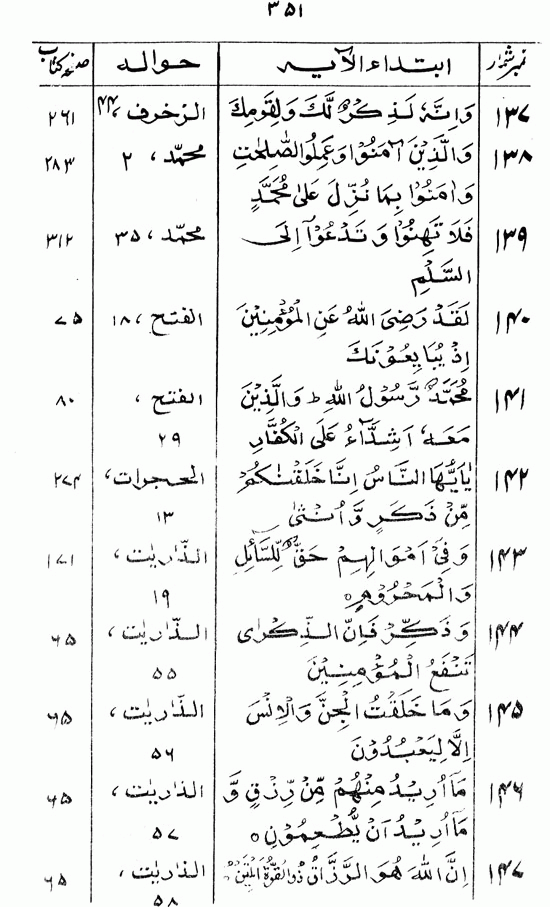 ۳۵۱
نمبر شمار ابتداء الآیہ حوالہ صفحہ کتاب
۱۳۷ وَاِنَّہٗ لَذِکْرٌ لَّکَ وَلِقَوْمِکَ الزخرف ،۴۴ ۲۶۱
۱۳۸ وَالَّذِیْنَ اٰمَنُوْا وَعَمِلُوا الصّٰلِحٰتِ محمّد، ۲ ۲۸۳
وَاٰمَنُوْا بِمَا نُزِّلَ عَلٰی مُحَمَّدٍ
۱۳۹ فَلَا تَھِنُوْا وَ تَدْعُوْٓا اِلَی محمّد ، ۳۵ ۳۱۲
السَّلْمِ
۱۴۰ لَقَدْ رَضِیَ اللہُ عَنِ الْمُؤْمِنِیْنَ الفتح ،۱۸ ۷۵
اِذْ یُبَایِعُوْنَکَ
۱۴۱ مُحَمَّدٌ رَّسُوْلُ اللہِ ط وَالَّذِیْنَ الفتح ، ۸۰
مَعَہٗ اَشِدَّآءُ عَلَی الْکُفَّارِ ۲۹
۱۴۲ یٰٓاَیُّھَا النَّاسُ اِنَّا خَلَقْنٰکُمْ الحجرات، ۲۷۴
مِّنْ ذَکَرٍ وَّ اُنْثٰی ۱۳
۱۴۳ وَ فِیْٓ اَمْوَالِہِمْ حَقٌّ لِّلسَّآئِلِ الذّٰریٰت ، ۱۷۱
وَالْمَحْرُوْمِ ۱۹
۱۴۴ وَ ذَکِّرْ فَاِنَّ الذِّکْرٰی الذّٰریٰت ، ۶۵
تَنْفَعُ الْمُؤْمِنِیْنَ ۵۵
۱۴۵ وَمَا خَلَقْتُ الْجِنَّ وَالْاِنْسَ الذّٰریٰت ، ۶۵
اِلَّا لِیَعْبُدُوْنَ ۵۶
۱۴۶ مَآ اُرِیْدُ مِنْھُمْ مِّنْ رِّزْقٍ وَّ الذٰریٰت ، ۶۵
مَآ اُرِیْدُ اَنْ یُّطْعِمُوْنِ ۵۷
۱۴۷ اِنَّ اللہَ ھُوَ الرَّزَّاقُ ذُو الْقُوَّۃِ الْمَتِیْنُ الذٰریٰت ، ۶۵
۵۸